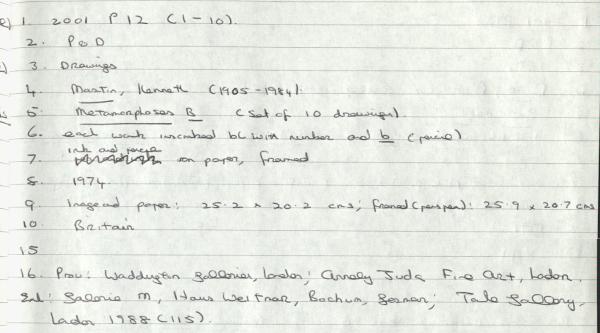 1. 2001 P12 (1-10).
2. P & D
3. Drawings
4. Martin, Kenneth (1905-1984).
5. Metamorphoses B (set of 10 drawings).
6. each work inscribed bl with number and b (pencil)
ink and pencil
7. on paper, framed
8. 1974
9. Image and paper: 25.2 x 20.2 cms; framed (perspex): 25.9 x 20.7 cms
10. Britain
15
16. Prov: Waddington Galleries, London; Annely Juda Fine Art, London.
Exh: Galerie M, Haus Weitmar, Bochum, German; Tate Gallery,
London 1988 (115).